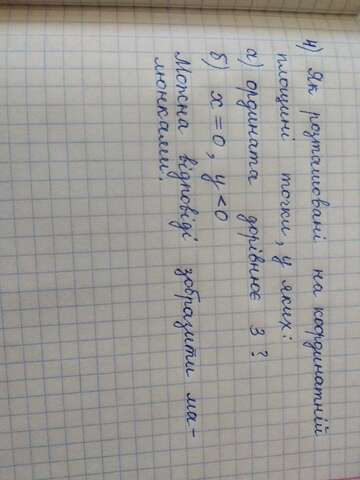 4) Як розташовані на координатній
площині точки, у яких:
а) ордината дорівнює 3?
б) x = 0, y < 0
Можна відповіді зобразити ма-
люнками.